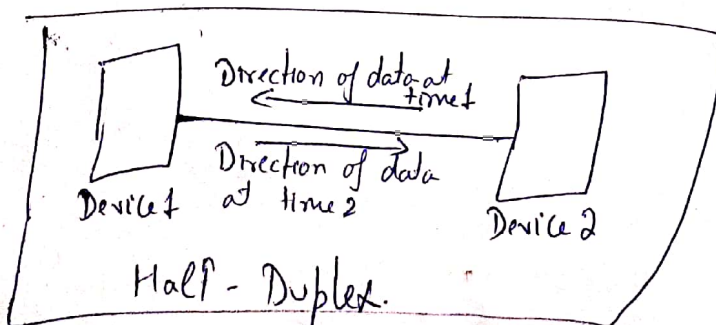 Direction of data at
time1
Direction of data
at time 2
Device1
Device 2
Half - Duplex.